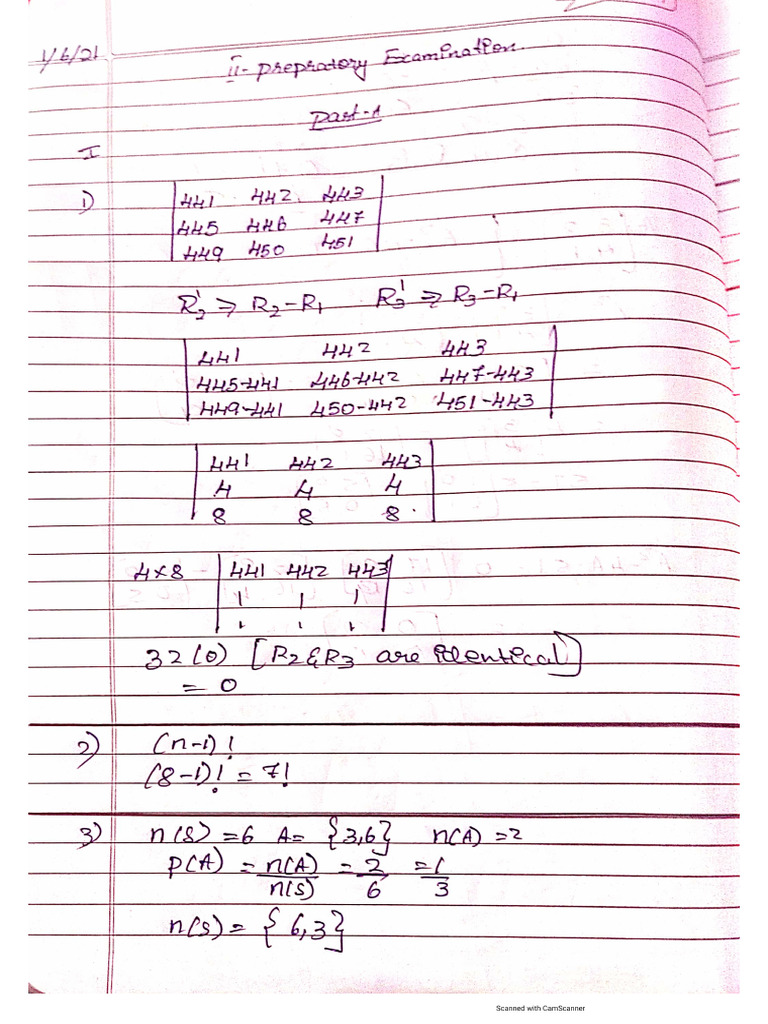 1/6/21
II- prepratory Examination.
Part-A
I
1) | 441 442 443 |
| 445 446 447 |
| 449 450 451 |
R₂' ⇒ R₂-R₁ R₃' ⇒ R₃-R₁
| 441 442 443 |
| 445-441 446-442 447-443 |
| 449-441 450-442 451-443 |
| 441 442 443 |
| 4 4 4 |
| 8 8 8 |
4×8 | 441 442 443 |
| 1 1 1 |
| 1 1 1 |
32(0) [R₂ & R₃ are identical]
= 0
2) (n-1)!
(8-1)! = 7!
3) n(S) = 6 A = {3,6} n(A) = 2
P(A) = n(A)/n(S) = 2/6 = 1/3
n(S) = {6,3}
Scanned with CamScanner